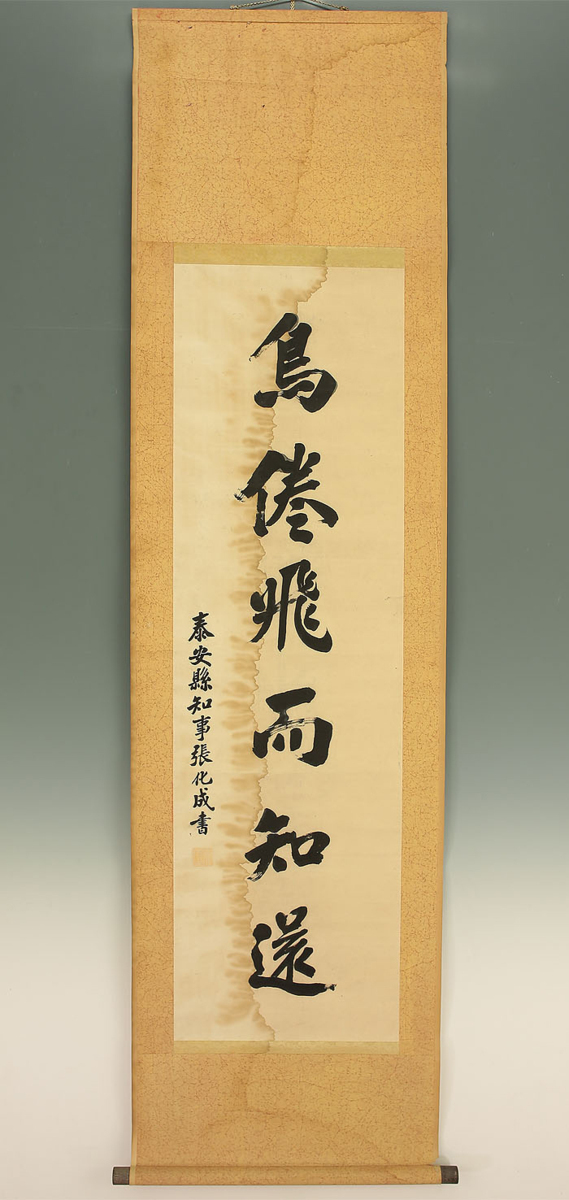 鳥倦飛而知還
泰安縣知事張化成書